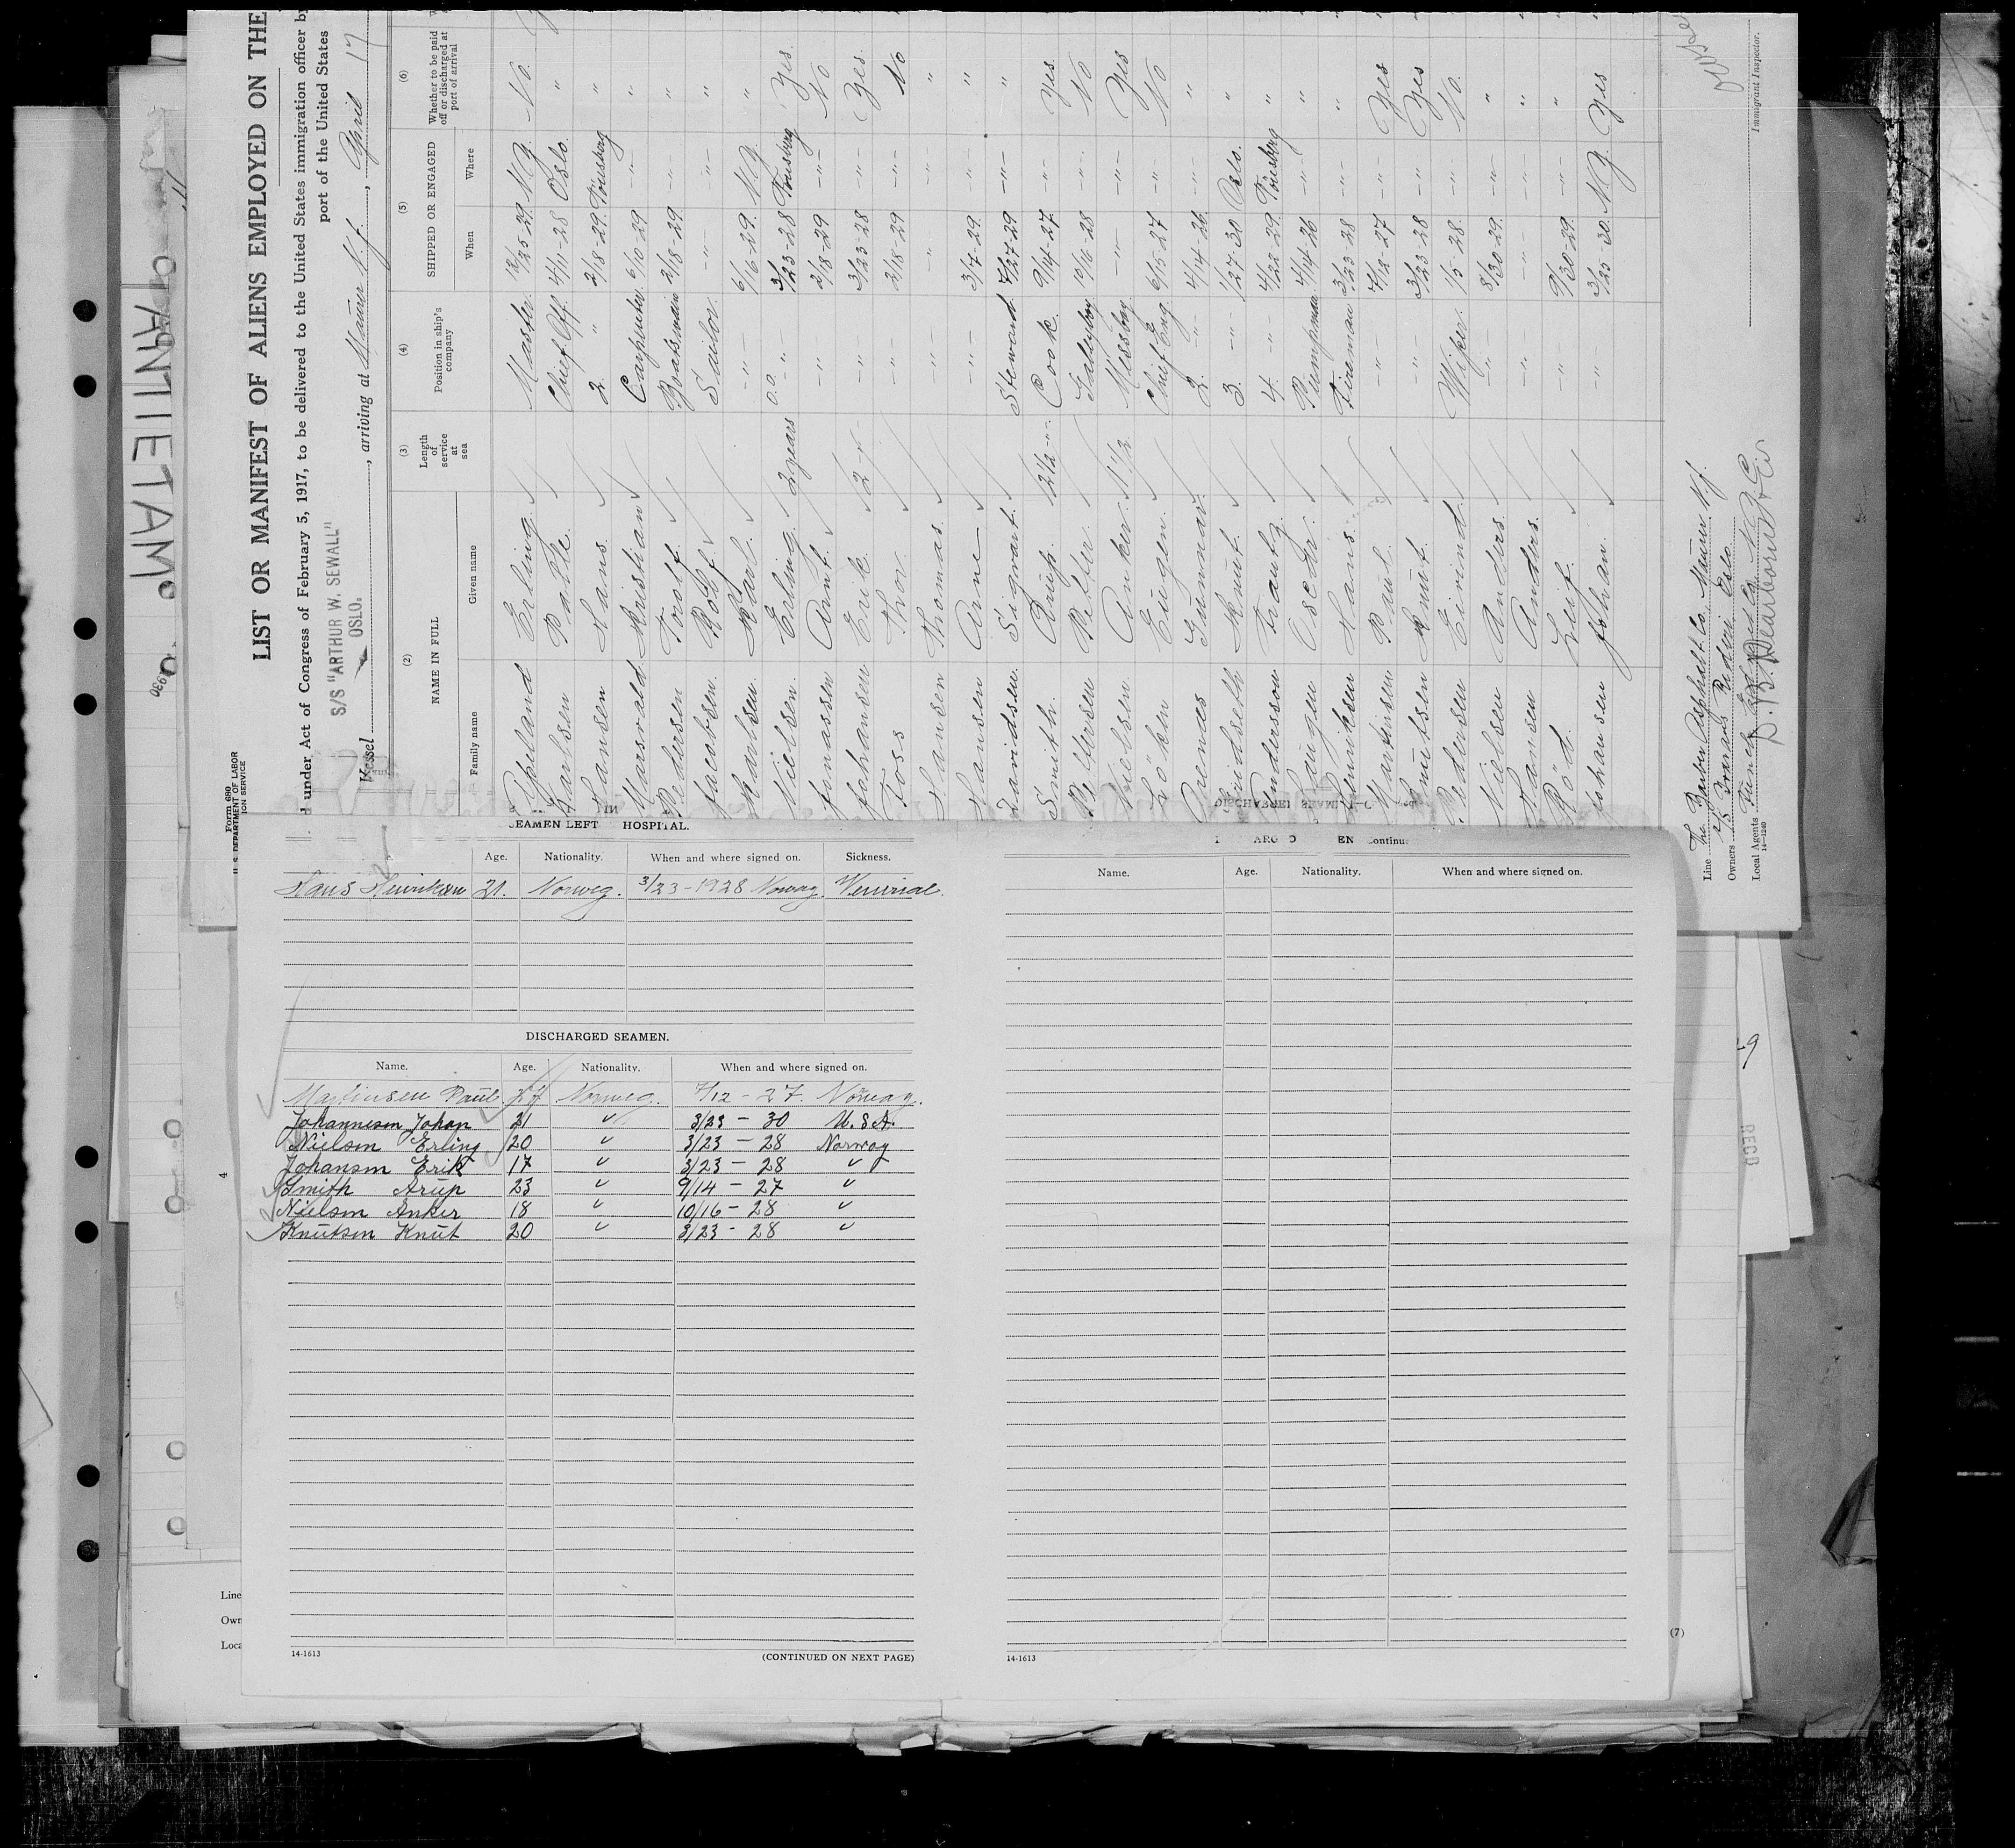 Form 680
U. S. DEPARTMENT OF LABOR
ION SERVICE
LIST OR MANIFEST OF ALIENS EMPLOYED ON THE
d under Act of Congress of February 5, 1917, to be delivered to the United States immigration officer by
port of the United States
S/S "ARTHUR W. SEWALL"
OSLO.
Vessel , arriving at Maurer N. J. , April 17
(2) (3) (4) (5) (6)
NAME IN FULL Length of service at sea Position in ship's company SHIPPED OR ENGAGED Whether to be paid off or discharged at port of arrival
Family name Given name When Where
Erling Master 12/25-29 N.Y. No.
Karlsen Palle Chief Off. 4/11-28 Oslo "
Hansen Hans. 2. " 2/18-29. Tönsberg "
Marsvald Kristian Carpenter. 6/10-29 -"- "
Pedersen Trolf. Boatsmain 2/18-29 -"- "
Jacobsen. Rolf. Sailor. -"- -"- "
Karlsen. Karl. -"- 6/6-29. N.Y. "
Nielsen. Erling. 2 years O.O. -"- 3/23-28 Tönsberg Yes.
Jonassen Arnt. -"- 2/18-29 -"- No
Johansen Erik 2 -"- -"- 3/23-28 -"- Yes.
Foss Thor -"- 2/18-29 -"- No
Hansen Thomas. -"- -"- -"- "
Hansen Arne -"- 3/7-29. -"- "
Davidsen. Sigvart. Steward 7/27-29 -"- "
Smith. Arup. 2 1/2 -"- Cook. 9/14-27 -"- Yes.
Pettersen Petter Galleyboy 10/16-28 -"- No
Nielsen. Anker. 1 1/2 Messboy -"- -"- Yes
Löken Eugen. Chief Eng. 6/15-27 -"- No
Arenas Gunnar. 2. -"- 4/14-26 -"- "
Eridseth Knut. 3. -"- 1/27-30 Oslo. "
Andersson Frantz. 4. -"- 4/22-29. Tönsberg "
Haugen Oscar. Pumpman 4/14-26 -"- "
Henriksen Hans. Fireman 3/23-28 -"- "
Martinsen Paul. -"- 7/12-27 -"- Yes
Knutsen Knut. -"- 3/23-28 -"- Yes
Pedersen Eivind. Wiper. 1/5-28. -"- No.
Nielsen Anders. -"- 8/30-29. -"- "
Hansen Anders. -"- -"- -"- "
Röd. Leif. -"- 9/30-29. -"- "
Johansen Johan. -"- 3/23-30. N.Y. Yes
Line The Barber Asphalt Co. Maurer N.J.
Owners
Oslo
Local Agents Funch Edye & Co. N.Y.
14-1240
Immigrant Inspector.
ANTIETAM
SEAMEN LEFT HOSPITAL.
Age. Nationality. When and where signed on. Sickness.
Hans Henriksen 21. Norweg. 3/23-1928 Norway. Venirial.
DISCHARGED SEAMEN.
Name. Age. Nationality. When and where signed on.
Martinsen Paul. Norweg. 7/12 - 27. Norway.
Johannesen Johan 21 " 3/23 - 30 U.S.A.
Nielsen Erling 20 " 3/23 - 28 Norway
Johansen Erik 17 " 3/23 - 28 "
Smith Arup 23 " 9/14 - 27 "
Nielsen Anker 18 " 10/16 - 28 "
Knutsen Knut 20 " 3/23 - 28
14-1613
(CONTINUED ON NEXT PAGE)
ARG EN Continu
Name. Age. Nationality. When and where signed on.
14-1613
(7)
4
Line
Own
Loca
RECD